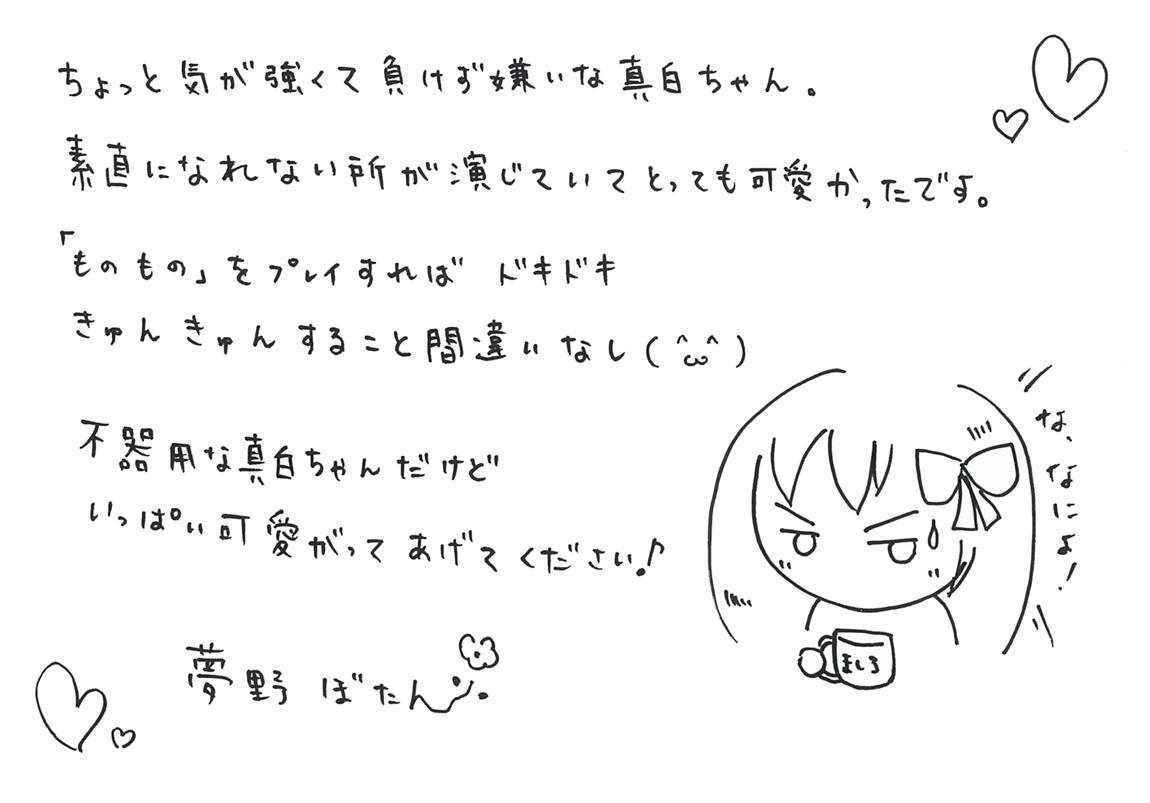 ちょっと気が強くて負けず嫌いな真白ちゃん。
素直になれない所が演じていてとっても可愛かったです。
「ものもの」をプレイすれば ドキドキ
きゅんきゅんすること間違いなし(^ω^)
不器用な真白ちゃんだけど
いっぱい可愛がってあげてください♪
夢野 ぼたん
な、なによ!
ましろ